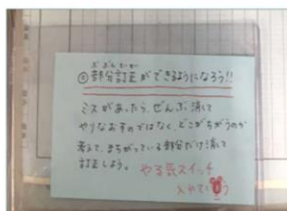 ぶ ぶん てい せい
◎部分訂正ができるようになろう!!
ミスがあったら、ぜんぶ消して
やりなおすのではなく、どこがちがうのか
考えて、まちがっている部分だけ消して
訂正しよう。
やる気スイッチ